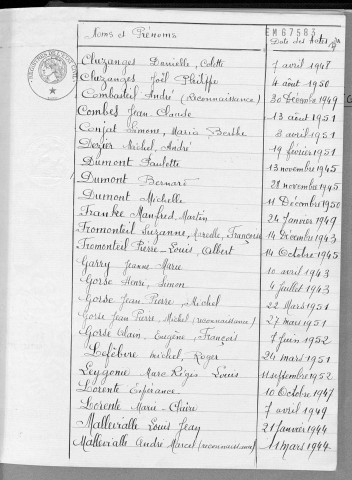 EM67583
Noms et Prénoms Date des Actes
Cluzanges Danielle, Colette 7 avril 1948
Cluzanges Joël Philippe 4 août 1950
Combasteil André (Reconnaissance) 30 Décembre 1949
Combes Jean Claude 13 août 1951
Conjat Simone, Maria Berthe 3 avril 1951
Dezier Michel, André 19 février 1951
Dumont Paulette 13 novembre 1945
Dumont Bernard 28 novembre 1945
Dumont Michelle 11 Décembre 1950
Franke Manfred, Martin 24 Janvier 1949
Fromonteil Suzanne, Marcelle, Françoise 14 Décembre 1943
Fromonteil Pierre, Louis, Albert 14 Octobre 1945
Garry Jeanne Marie 10 avril 1943
Gorse Henri, Simon 4 Juillet 1943
Gorse Jean Pierre, Michel 22 Mars 1951
Gorse Jean Pierre Michel (reconnaissance) 27 mai 1951
Gorse Alain, Eugène, François 7 Juin 1952
Lefebvre Michel, Roger 24 mars 1951
Leygonie Marc Régis Louis 11 septembre 1952
Lorente Espérance 10 Octobre 1947
Lorente Marie-Claire 7 avril 1949
Mallevialle Louis Jean 21 Janvier 1944
Mallevialle André Marcel (reconnaissance) 11 mars 1944